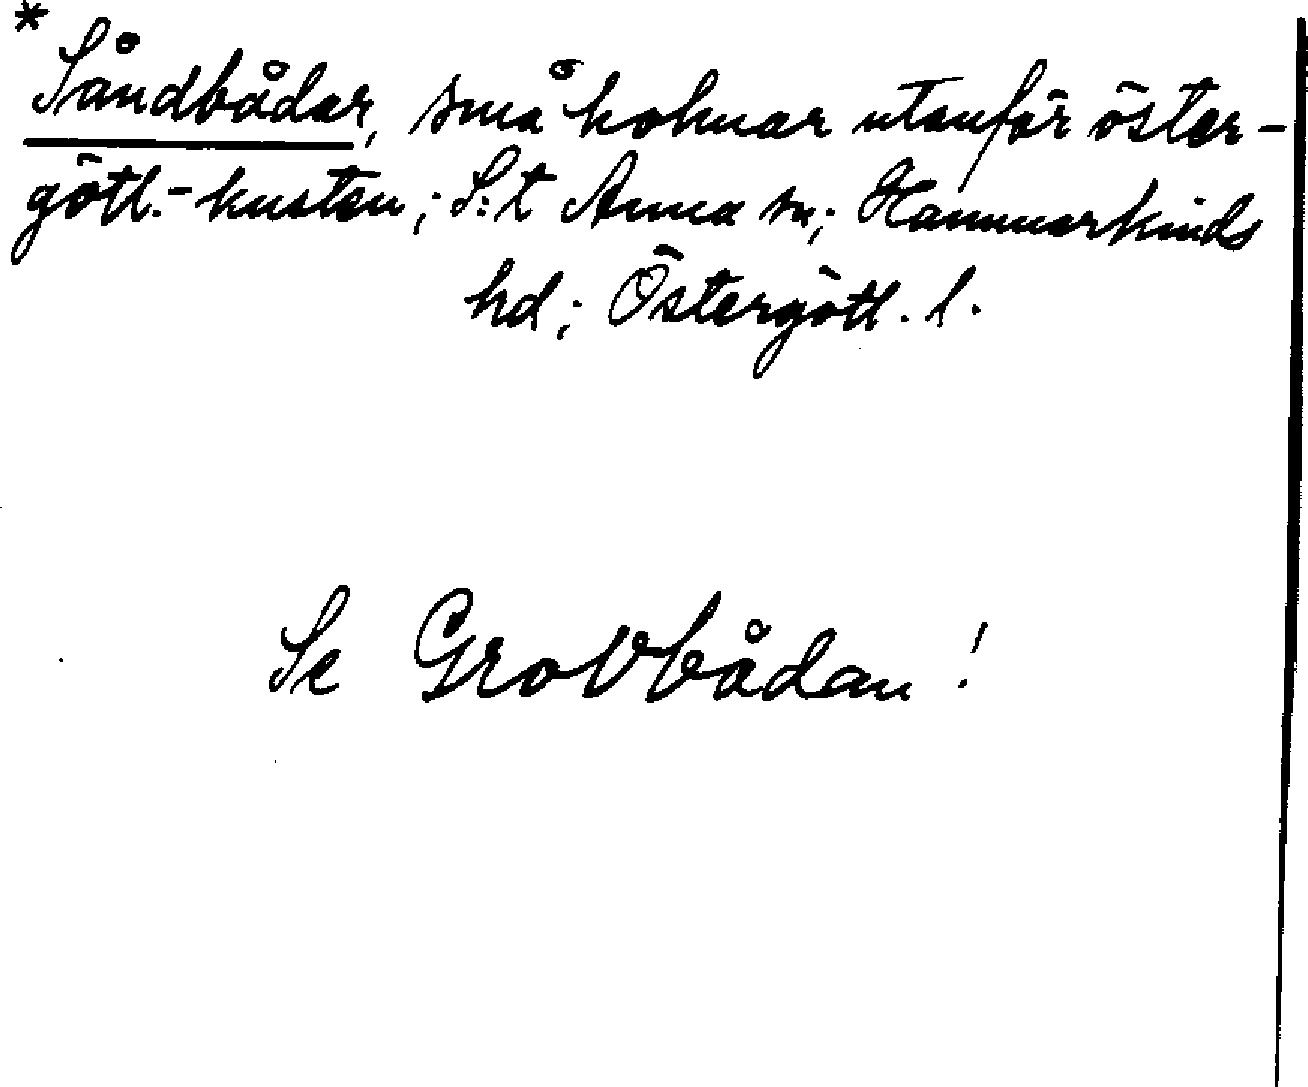 * Såndbådar, små holmar utanför öster-
götl.-kusten; S:t Anna sn; Hammarkinds
hd; Östergötl. l.
Se Grovbådan!